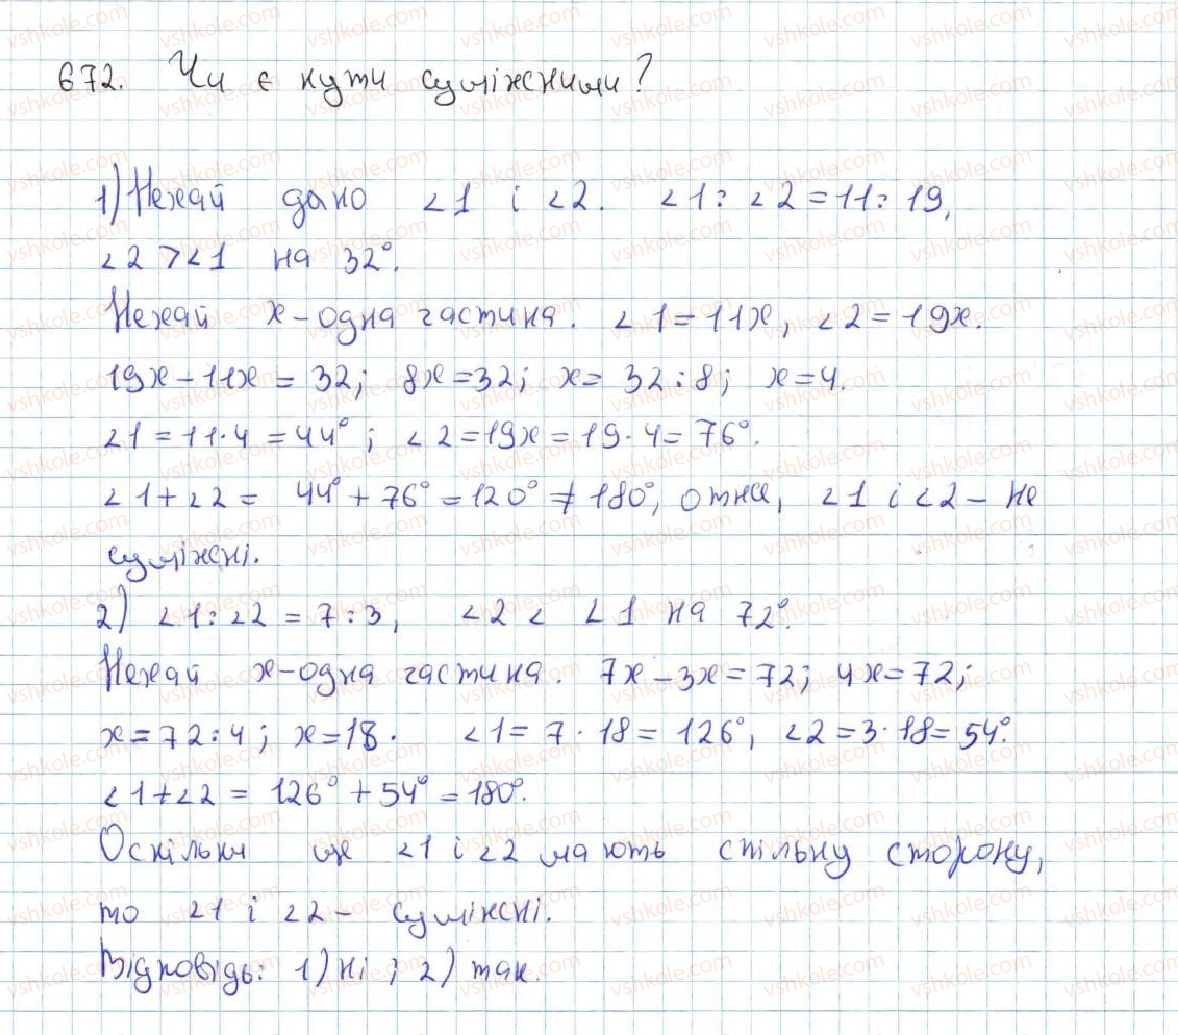 672. Чи є кути суміжними?
1) Нехай дано ∠1 і ∠2. ∠1 : ∠2 = 11 : 19,
∠2 > ∠1 на 32°.
Нехай x – одна частина. ∠1 = 11x, ∠2 = 19x.
19x – 11x = 32; 8x = 32; x = 32 : 8; x = 4.
∠1 = 11 · 4 = 44°; ∠2 = 19x = 19 · 4 = 76°.
∠1 + ∠2 = 44° + 76° = 120° ≠ 180°, отже, ∠1 і ∠2 – не
суміжні.
2) ∠1 : ∠2 = 7 : 3, ∠2 < ∠1 на 72°.
Нехай x – одна частина. 7x – 3x = 72; 4x = 72;
x = 72 : 4; x = 18. ∠1 = 7 · 18 = 126°, ∠2 = 3 · 18 = 54°.
∠1 + ∠2 = 126° + 54° = 180°.
Оскільки ще ∠1 і ∠2 мають спільну сторону,
то ∠1 і ∠2 – суміжні.
Відповідь: 1) ні; 2) так.